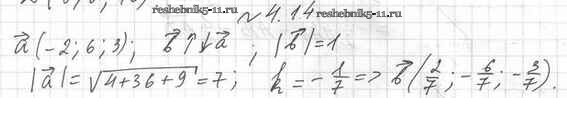 reshebnik5-11.ru
№ 4.14 reshebnik5-11.ru
a⃗ (-2; 6; 3); b⃗ ↑↓ a⃗ ; |b⃗| = 1
|a⃗| = √4+36+9 = 7; k = - 1/7 => b⃗ (2/7; - 6/7; - 3/7).